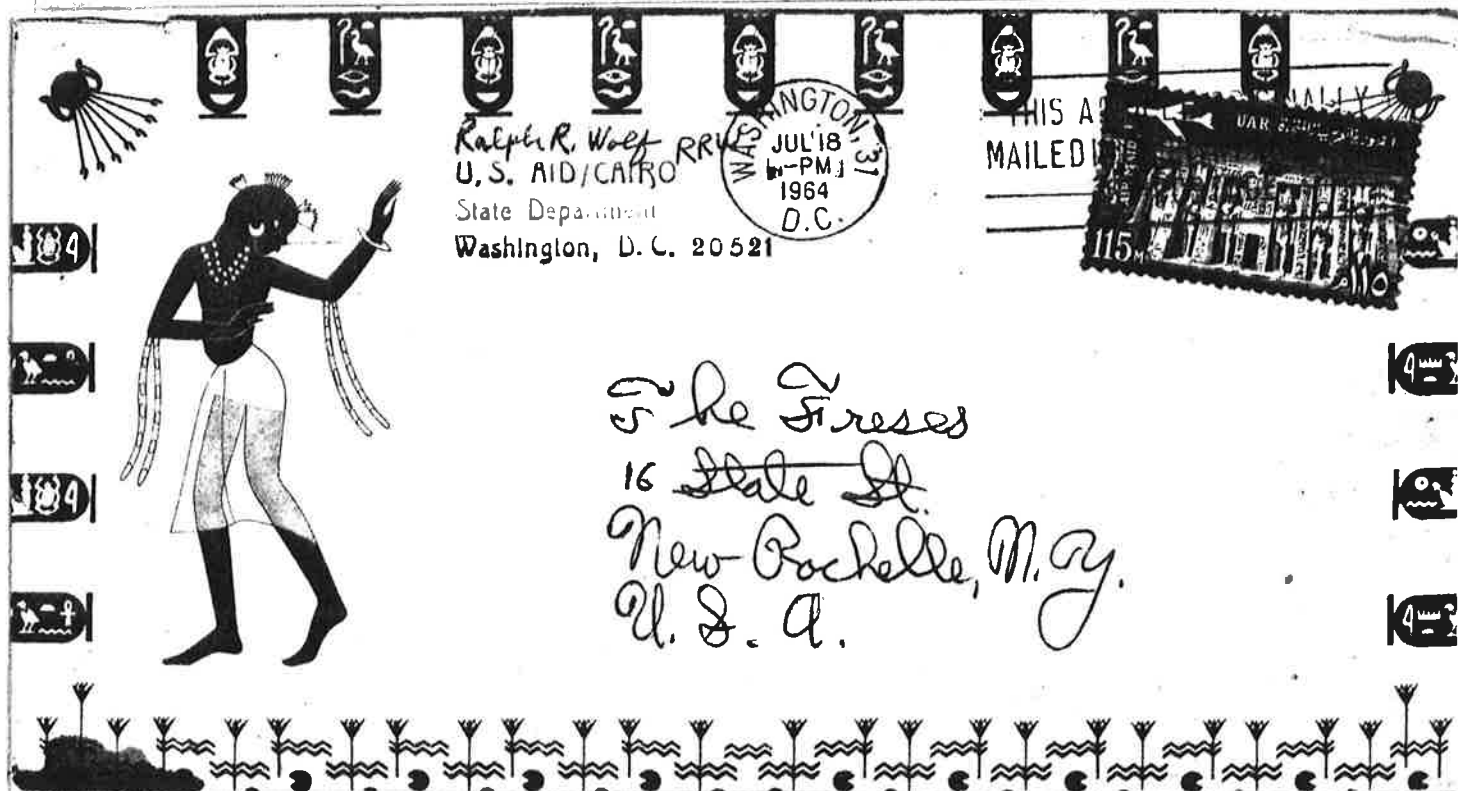 Ralph R. Wolf RRW
U.S. AID/CAIRO
State Department
Washington, D.C. 20521
WASHINGTON, 31
JUL 18
-PM
1964
D.C.
THIS A NALLY
MAILED
UAR
115 M
١١٥ م
The Freses
16 State St.
New Rochelle, N.Y.
U.S.A.